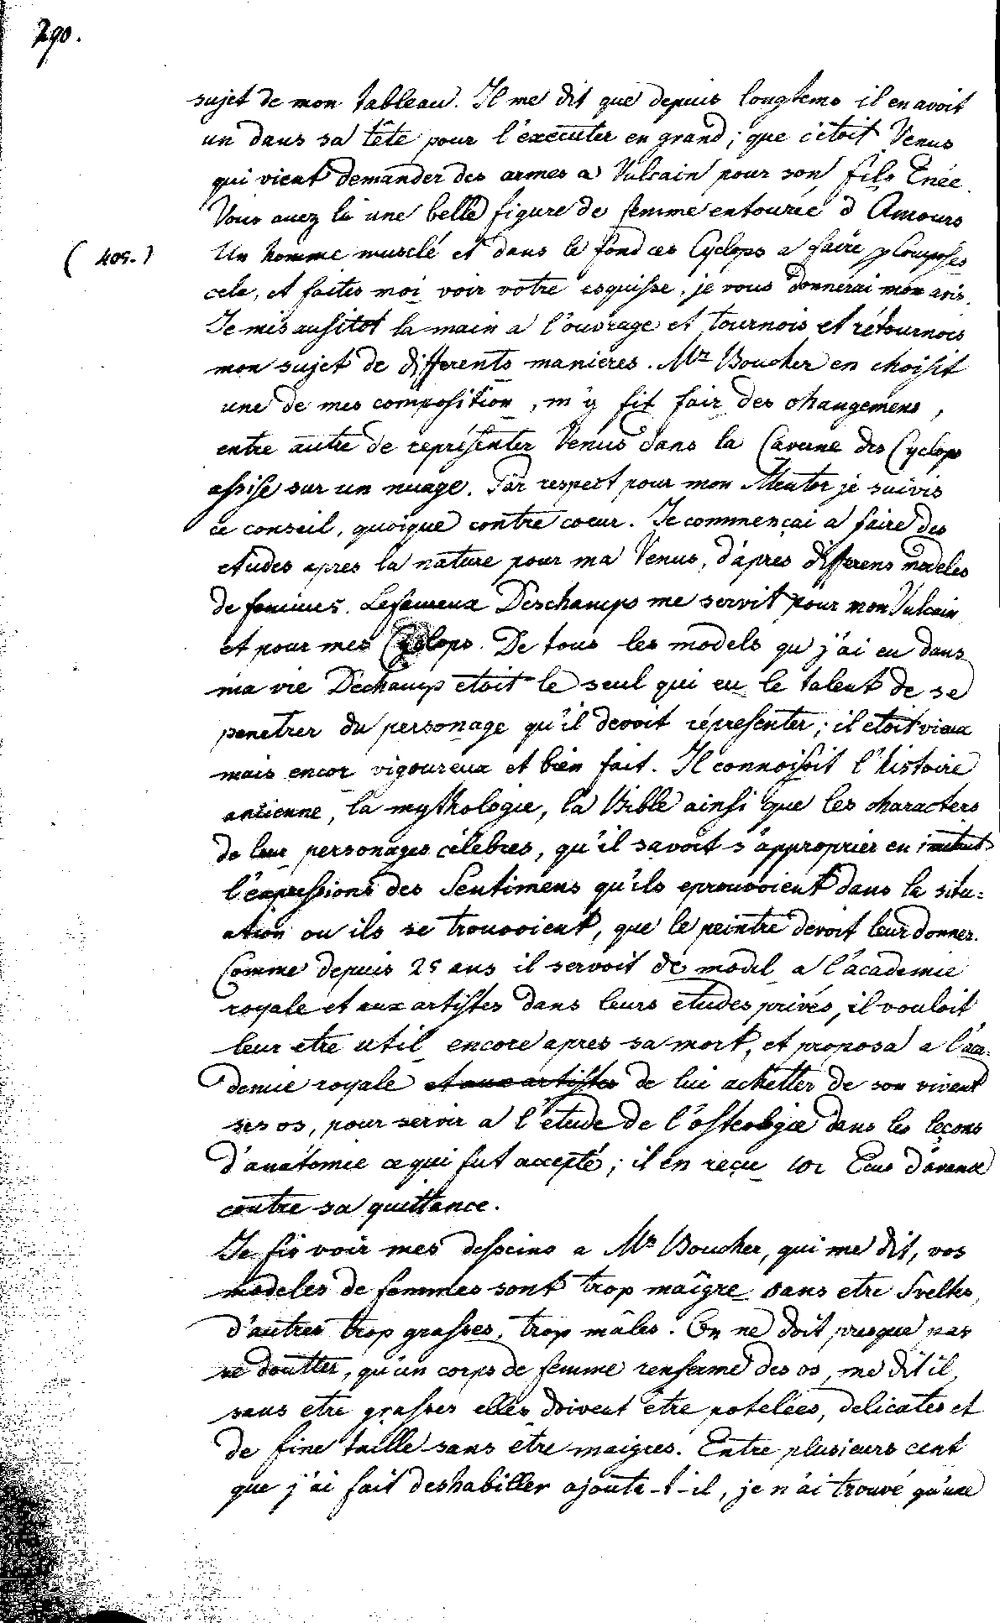 290.
sujet de mon tableau. Il me dit que depuis longtems il en avoit
un dans sa tête pour l'exécuter en grand; que c'étoit Venus
qui vient demander des armes a Vulcain pour son fils Enée.
Vous avez là une belle figure de femme entourée d'Amours
(409.) Un homme musclé et dans le fond ces Cyclops a faire, Composes
cela, et faites moi voir votre esquisse, je vous donnerai mon avis.
Je mis ausitot la main a l'ouvrage et tournois et rétournois
mon sujet de differents manieres. Mr Boucher en choisit
une de mes composition, m'y fit fair des changemens,
entre autre de représenter Venus dans la Caverne des Cyclops
assise sur un nuage. Par respect pour mon Mentor je suivis
ce conseil, quoique contre coeur. Je commençai a faire des
etudes apres la nature pour ma Venus, d'après differens modeles
de femmes. Le fameux Deschamps me servit pour mon Vulcain
et pour mes Cyclops. De tous les models qu'j'ai eu dans
ma vie Dechamp etoit le seul qui eu le talent de se
penetrer du personage qu'il devoit réprésenter; il etoit vieux
mais encor vigoureux et bien fait. Il connoissoit l'histoire
ancienne, la mythologie, la Bible ainsi que les characters
de leur personages célèbres, qu'il savoit s'approprier en imitant
l'expressions des Sentimens qu'ils eprouvoient dans la situ=
ation ou ils se trouvoient, que le peintre devoit leur donner.
Comme depuis 25 ans il servoit de model a l'academie
royale et aux artistes dans leurs études privés, il vouloit
leur etre util encore apres sa mort, et proposa a l'aca=
demie royale et aux artistes de lui achetter de son vivent
ses os, pour servir a l'étude de l'osteologie dans les leçons
d'anatomie ce qui fut accepté; il en reçu Ecus d'avance
contre sa quittance.
Je fis voir mes desseins a Mr Boucher, qui me dit, vos
modeles de femmes sont trop maîgre sans etre Sveltes,
d'autres trop grasses, trop mâles. On ne doit presque pas
se doutter, qu'un corps de femme renferme des os, me dit il,
sans etre grasses elles doivent être potelées, delicates et
de fine taille sans etre maigres. Entre plusieurs cent
que j'ai fait deshabiller ajoute-t-il, je n'ai trouvé qu'une